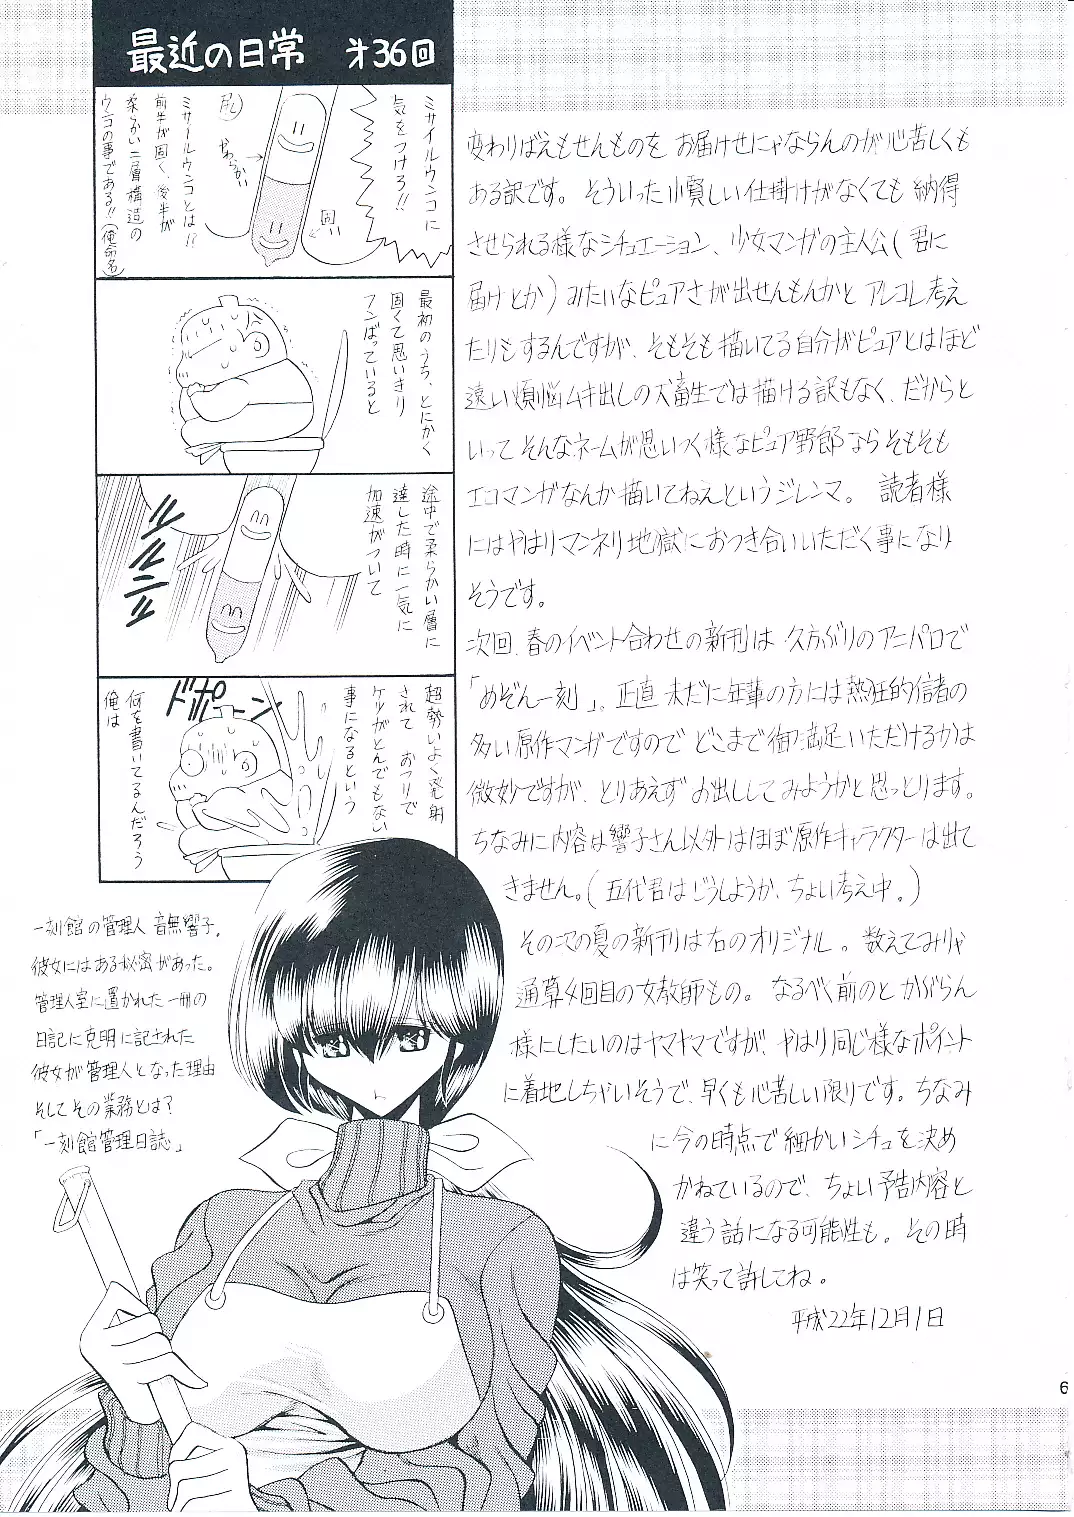 最近の日常　オ36回
ミサイルウンコに
気をつけろ!!
固い
やわらかい
ミサイルウンコとは!?
前半が固く、後半が
柔らかい二層構造の
ウンコの事である!!(俺命名)
最初のうち、とにかく
固くて思いきり
フンばっていると
途中で柔らかい層に
達した時に一気に
加速がついて
超勢いよく発射
されて おつりで
ケツがとんでもない
事になるという
ドボーン
何を書いてるんだろう
俺は
変わりばえもせんものを お届けせにゃならんのが心苦しくも
ある訳です。 そういった小賢しい仕掛けがなくても 納得
させられる様なシチュエーション、少女マンガの主人公(君に
届けとか)みたいなピュアさが出せんもんかと アレコレ考え
たりもするんですが、そもそも描いてる自分がピュアとはほど
遠い煩悩ムキ出しの犬畜生では描ける訳もなく、だからと
いって そんなネームが思いつく様なピュア野郎なら そもそも
エロマンガなんか描いてねえというジレンマ。 読者様
にはやはりマンネリ地獄におつき合いいただく事になり
そうです。
次回、春のイベント合わせの新刊は 久方ぶりのアニパロで
「めぞん一刻」。正直 未だに年輩の方には熱狂的信者の
多い原作マンガですので どこまで御満足いただけるかは
微妙ですが、とりあえず お出ししてみようかと思っとります。
ちなみに内容は響子さん以外はほぼ原作キャラクターは出て
きません。(五代君はどうしようか、ちょい考え中。)
その次の夏の新刊は右のオリジナル。数えてみりゃ
通算4回目の女教師もの。なるべく前のと かぶらん
様にしたいのはヤマヤマですが、やはり同じ様なポイント
に着地しちゃいそうで、早くも心苦しい限りです。ちなみ
に今の時点で細かいシチュを決め
かねているので、ちょい予告内容と
違う話になる可能性も。その時
は笑って許してね。
平成22年12月1日
一刻館の管理人 音無響子。
彼女にはある秘密があった。
管理人室に置かれた一冊の
日記に克明に記された
彼女が管理人となった理由
そしてその業務とは?
「一刻館管理日誌」
6